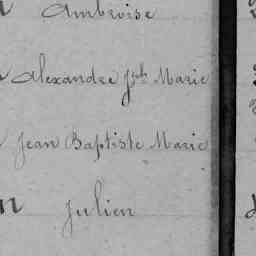 Ambroise
Alexandre Jph Marie
Jean Baptiste Marie
Julien